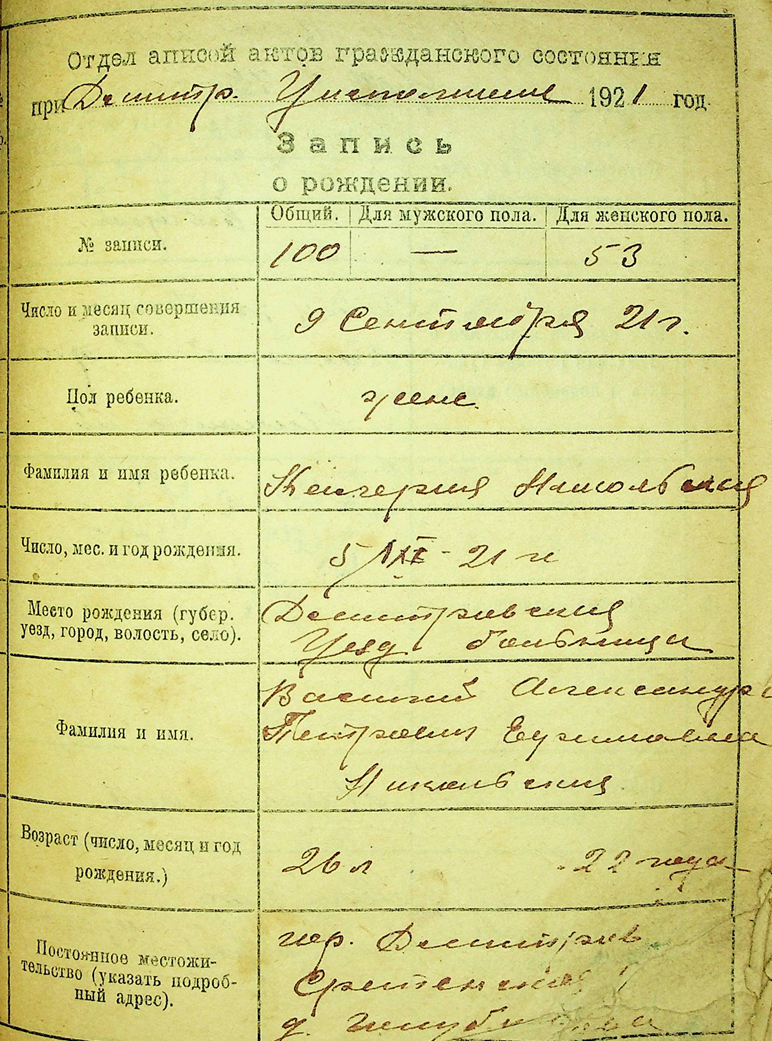 Отдел аписой актов гражданского состояния
при Дмитр. Уисполкоме 1921 год
Запись
о рождении.
Общий. Для мужского пола. Для женского пола.
№ записи. 100 — 53
Число и месяц совершения
записи.
9 Сентября 21 г.
Пол ребенка. женс.
Фамилия и имя ребенка. Никольская
Число, мес. и год рождения. 21 г
Место рождения (губер.
уезд, город, волость, село).
Дмитровская
Уезд. больница
Фамилия и имя.
Василий Александра
Петрович Ефимовна
Никольския
Возраст (число, месяц и год
рождения.)
26 л 22 года
Постоянное местожи-
тельство (указать подроб-
ный адрес).
гор. Дмитров
Сретенская
д.